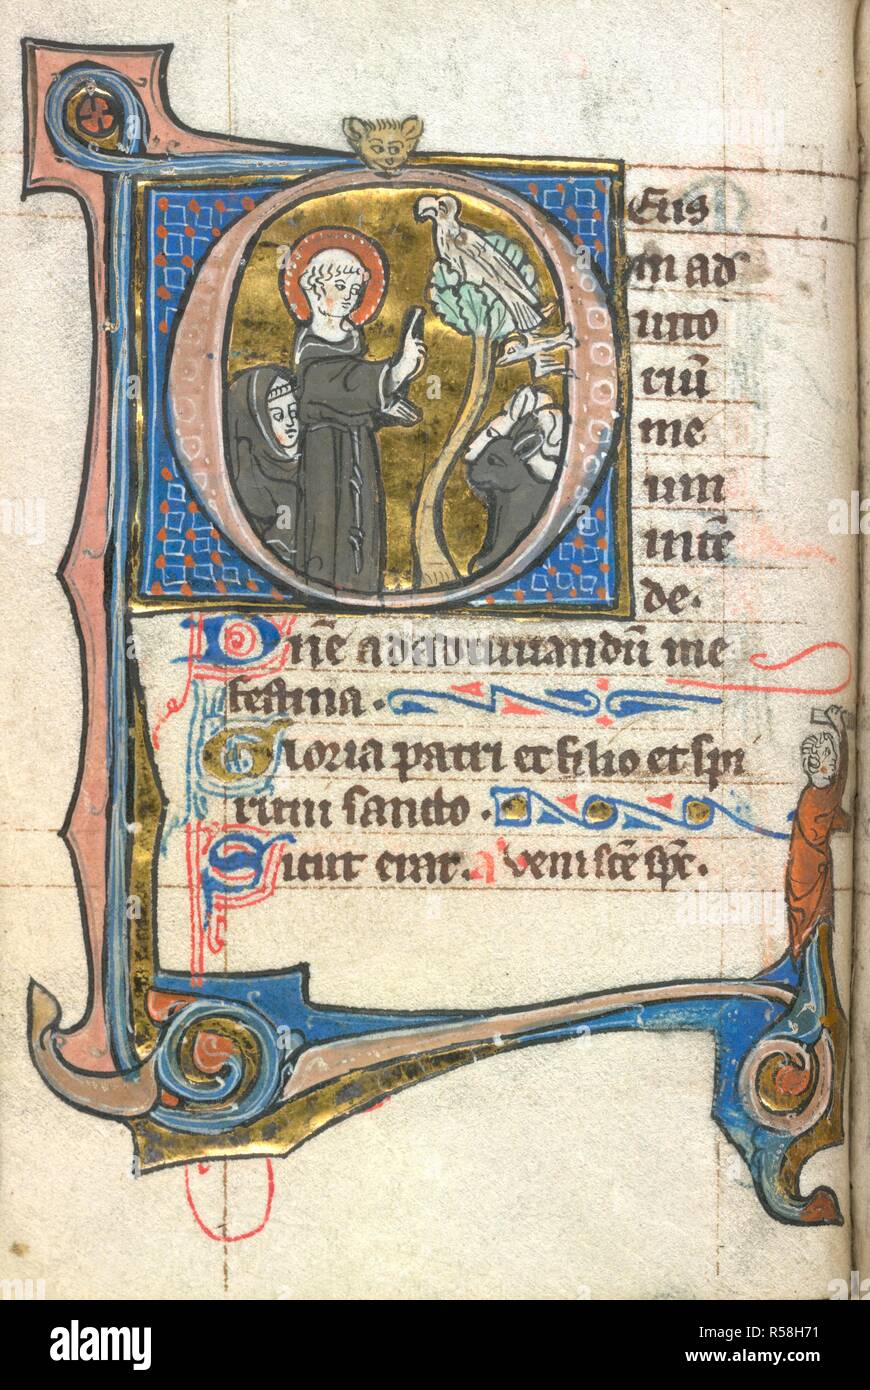 Eus
in ad
iuto
riū
me
um
intē
de.
Dñe ad adiuuandū me
festina.
Gloria patri et filio et spi
ritui sancto.
Sicut erat. a Veni scē spc.
alamy
alamy
alamy
Image ID: R58H71
www.alamy.com